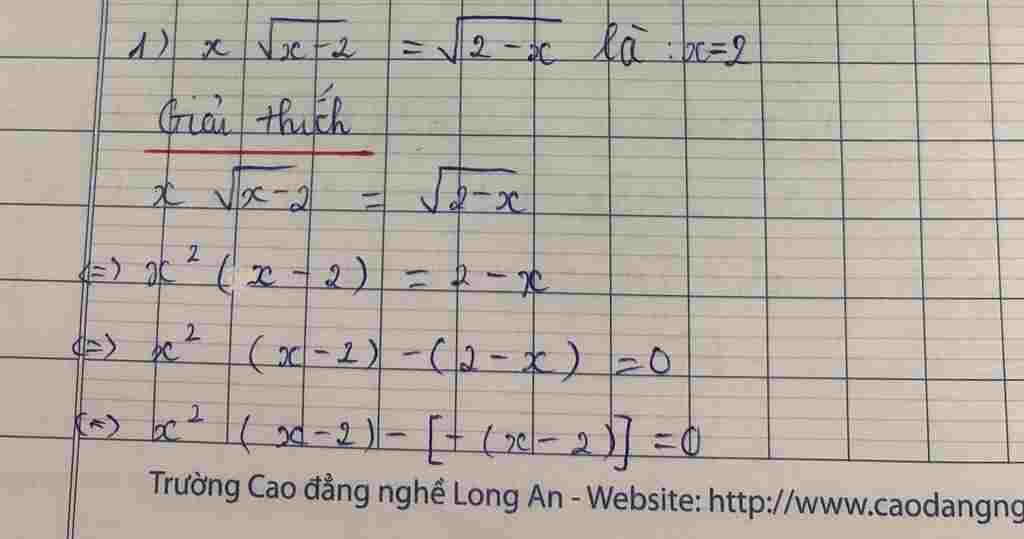 1) x √x-2 = √2-x là : x=2
Giải thích
x √x-2 = √2-x
(=) x² (x-2) = 2-x
(=) x² (x-2) -(2-x) =0
(=) x² (x-2) - [-(x-2)] =0
Trường Cao đẳng nghề Long An - Website: http://www.caodangng